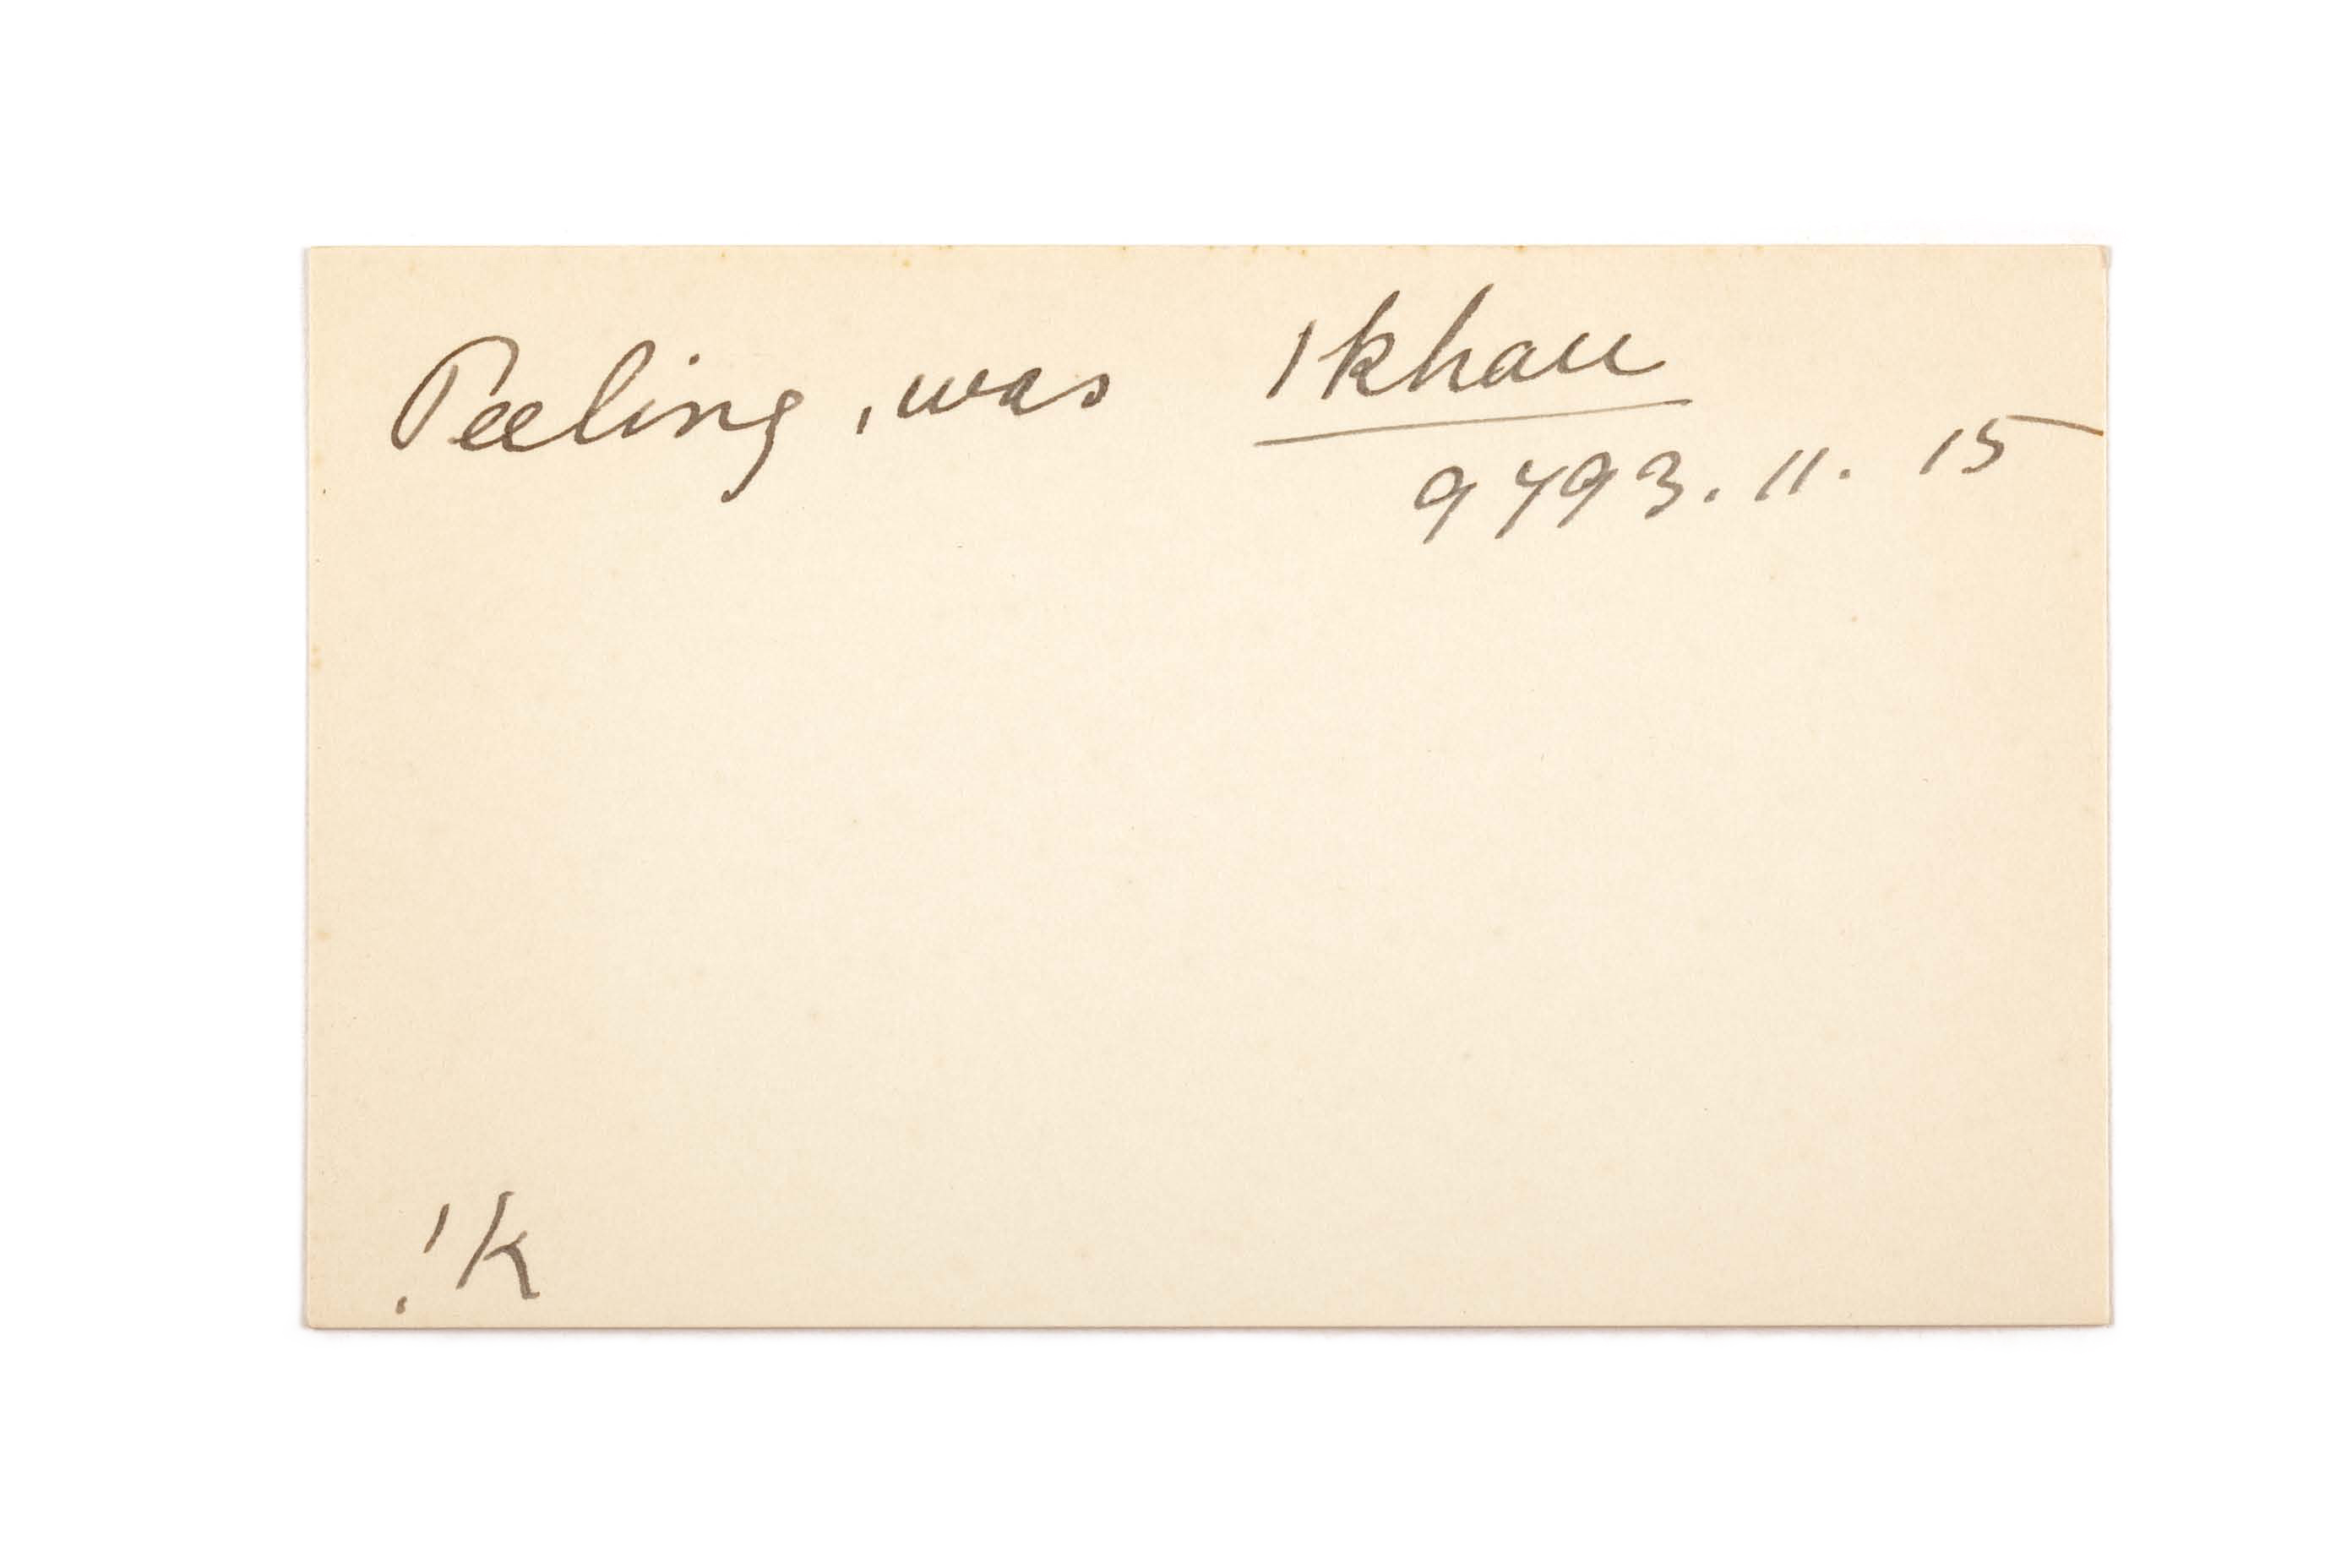 Peeling, was |khau
9793. 11. 15
!k